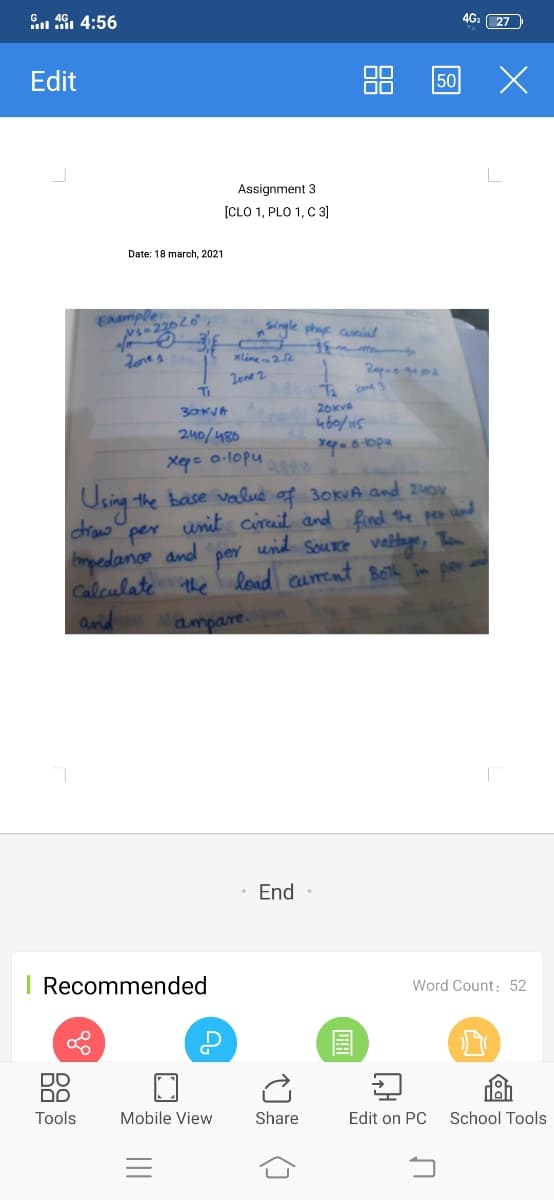 4G 4:56 4G 27
Edit 50
Assignment 3
[CLO 1, PLO 1, C 3]
Date: 18 march, 2021
Example
Vs=220 single phase
Zone 1 Xline=2Ω
Zone 2
T1 T2 Zone 3
30KVA 20KVA
240/480 460/115
Xep= 0.10pu Xep= 0.10pu
Using the base value of 30KVA and 240V
draw per unit circuit and find the per unit
impedance and per unit source voltage, Then
Calculate the load current Both in per unit
and ampare.
End
Recommended Word Count: 52
Tools Mobile View Share Edit on PC School Tools